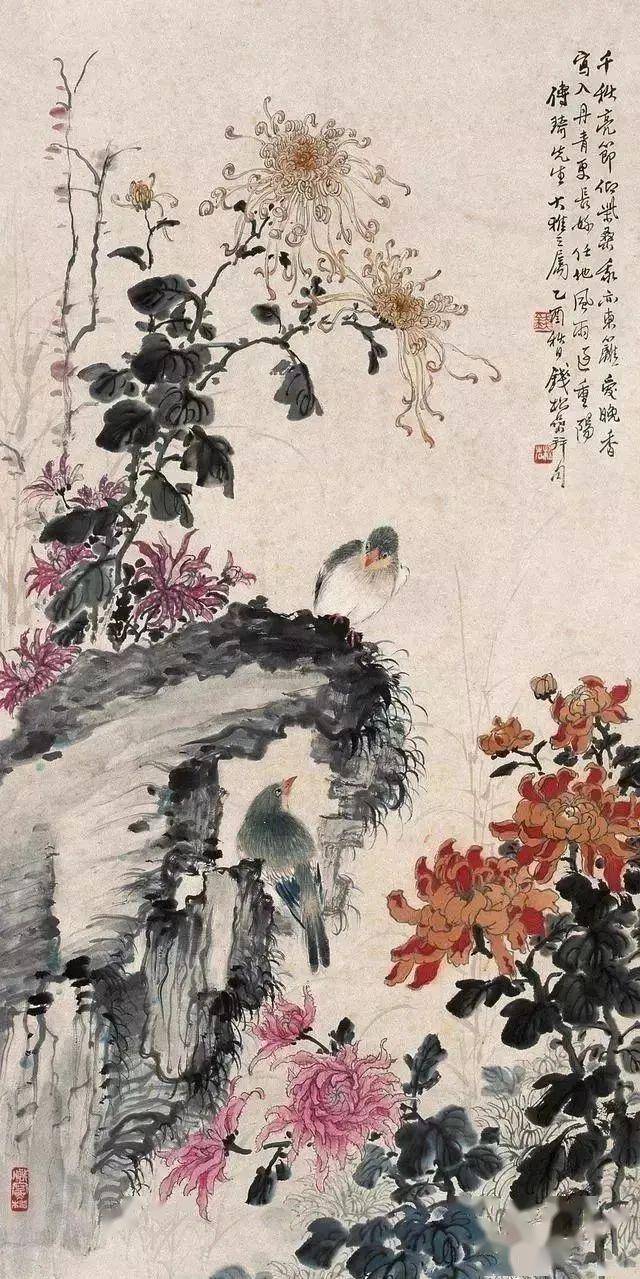 千秋亮節仰柴桑我亦東籬愛晚香
寫入丹青更長好任地風雨近重陽
傳琦先生大雅之屬乙酉秋日錢松嵒并句